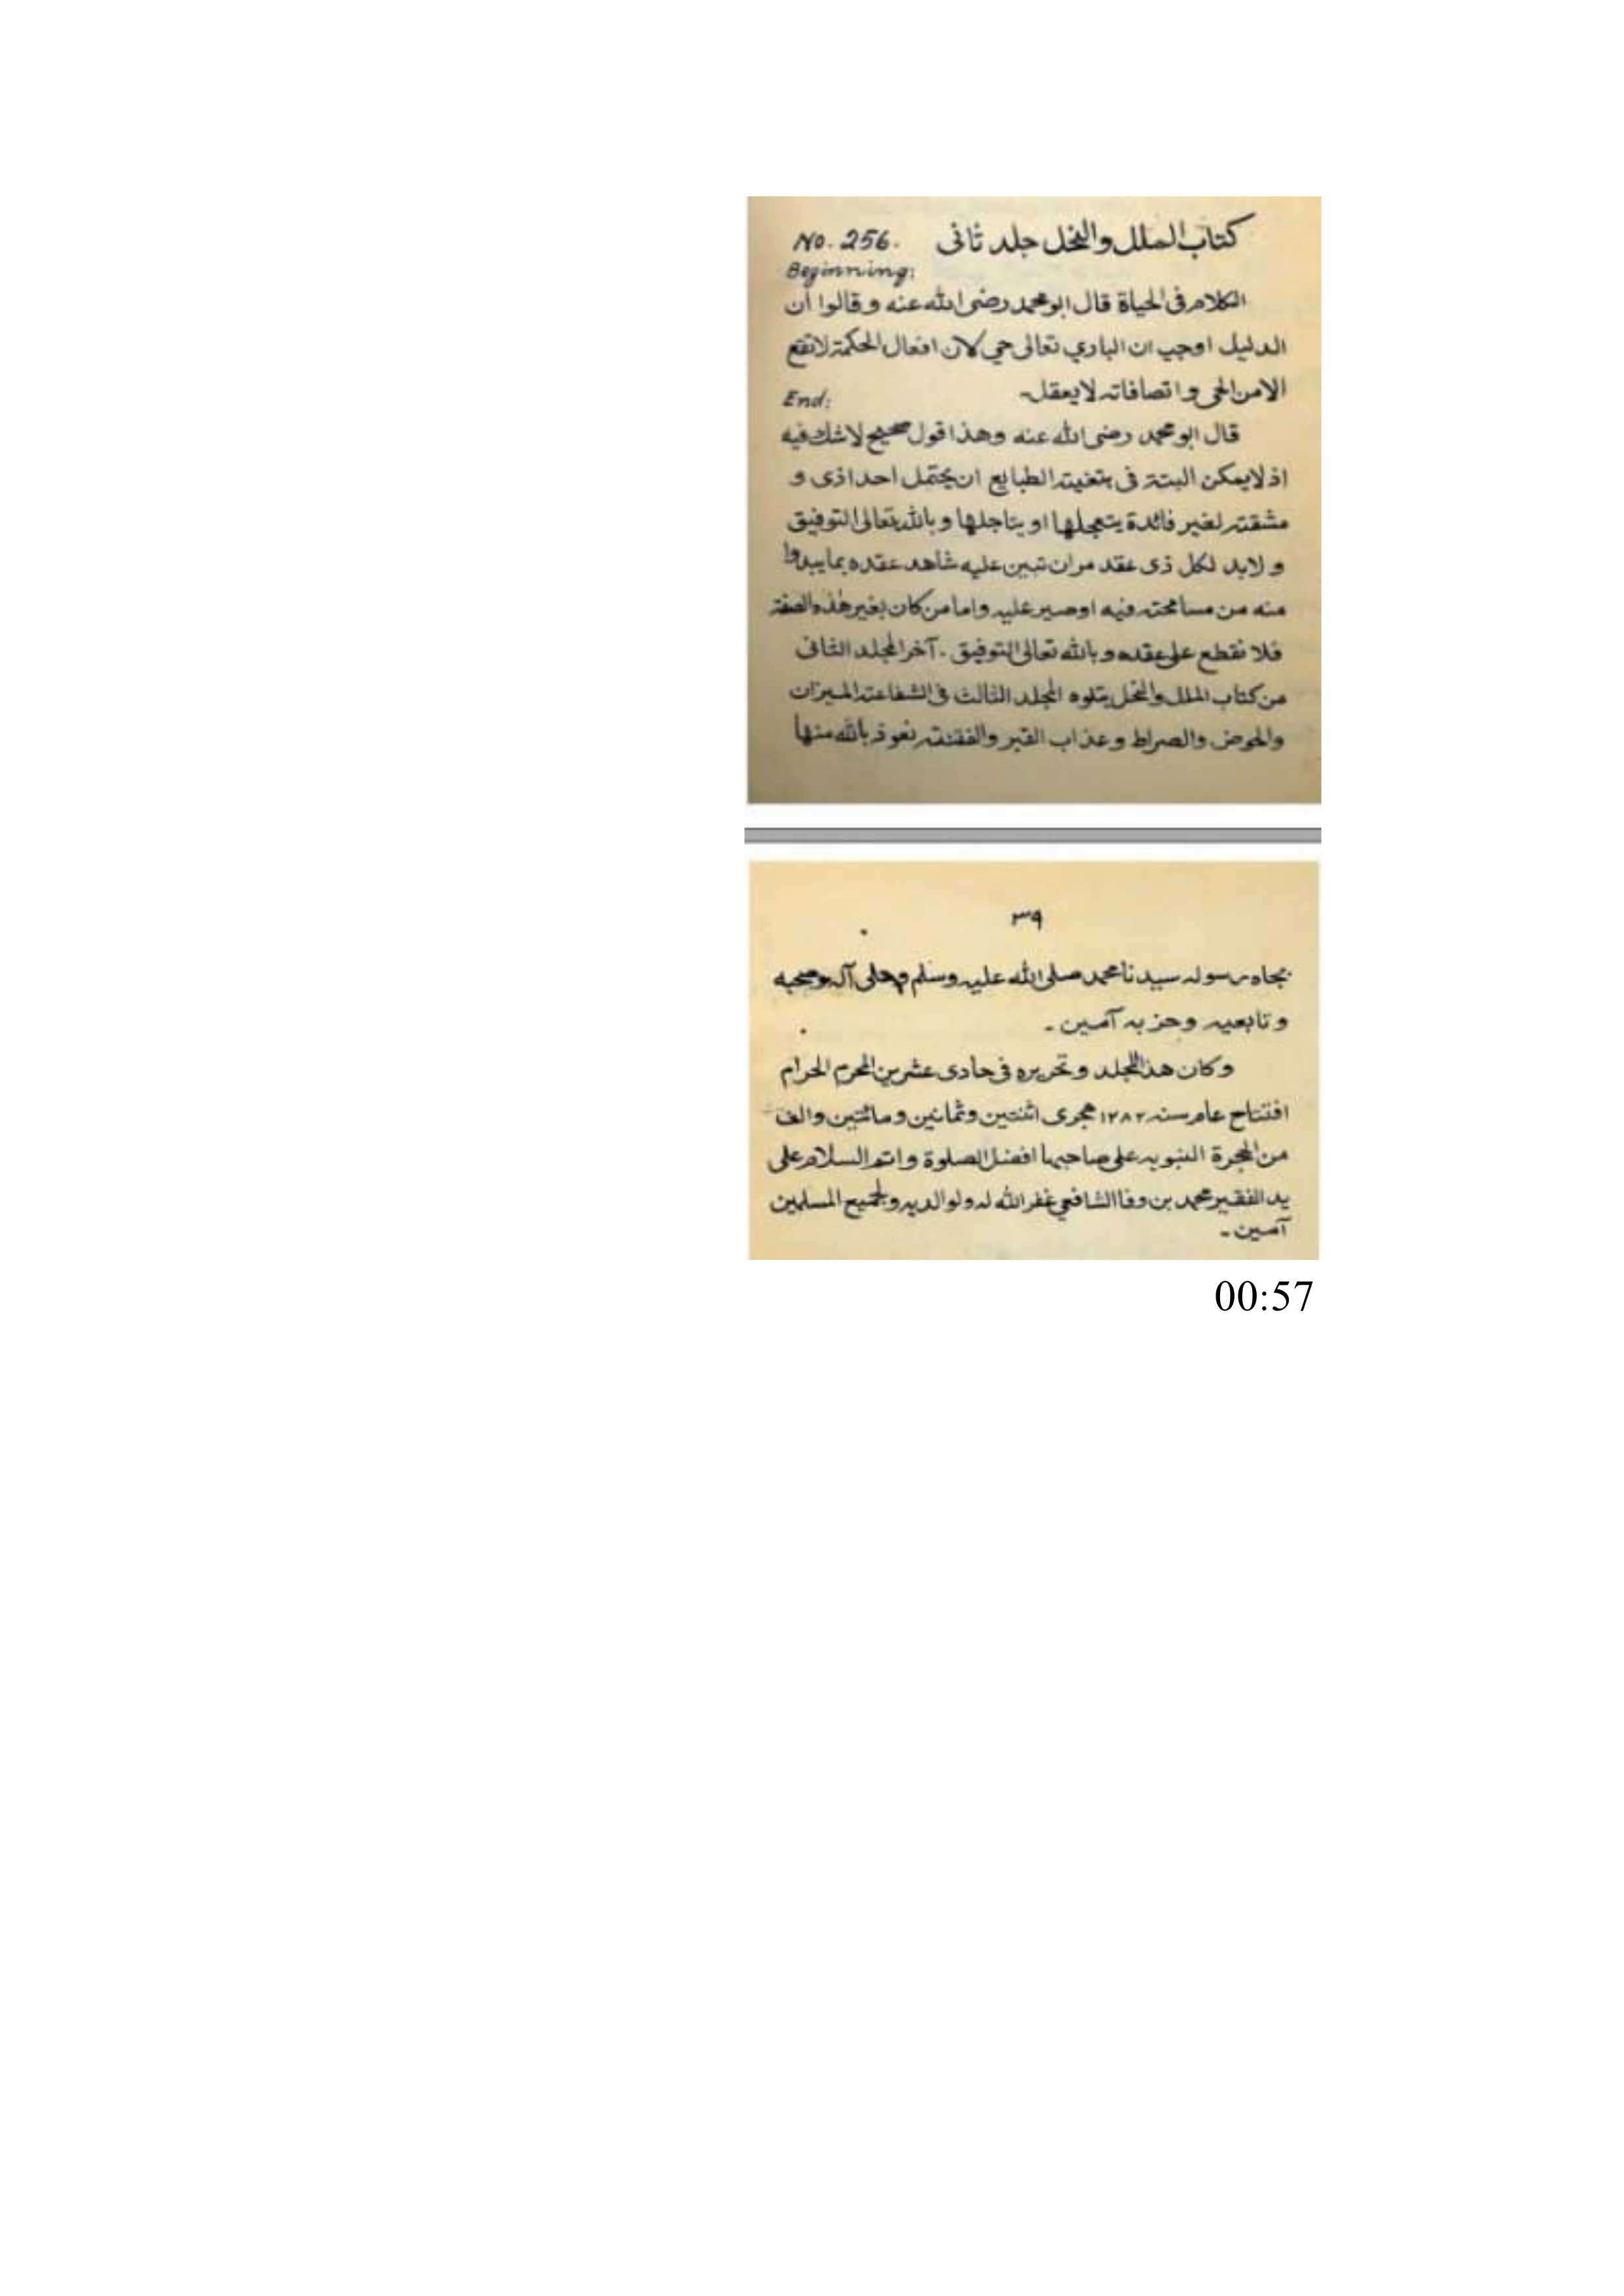 كتاب الملل والنحل جلد ثانى No. 256.
Beginning:
الكلام فى الحياة قال ابو محمد رضى الله عنه وقالوا ان
الدليل اوجب ان الباري تعالى حي لان افعال الحكمة لا تقع
الا من الحى و اتصافاته لا يعقل۔
End:
قال ابو محمد رضى الله عنه وهذا قول صحيح لا شك فيه
اذ لا يمكن البتة فى الطبايع ان يحتمل احد اذى و
مشقته لغير فائدة يتعجلها او يتاجلها و بالله تعالى التوفيق
و لابد لكل ذى عقد من ان تبين عليه شاهد عقده بما يبدوا
منه من مسامحته فيه او صبر عليه واما من كان بغير هذه الصفة
فلا نقطع على عقده و بالله تعالى التوفيق . آخر المجلد الثانى
من كتاب الملل والنحل يتلوه المجلد الثالث فى الشفاعة الميزان
والحوض والصراط وعذاب القبر والفتنة نعوذ بالله منها
٣٩
بجاه رسوله سيدنا محمد صلى الله عليه وسلم وعلى آله وصحبه
و تابعيه وحزبه آمين ۔
وكان هذا المجلد وتحريره فى حادى عشر من المحرم الحرام
افتتاح عام سنه ١٢٨٢ هجرى اثنتين وثمانين ومائتين والف
من الهجرة النبويه على صاحبها افضل الصلوة واتم السلام على
يد الفقير محمد بن وفا الشافعي غفر الله له ولوالديه ولجميع المسلمين
آمين ۔
00:57